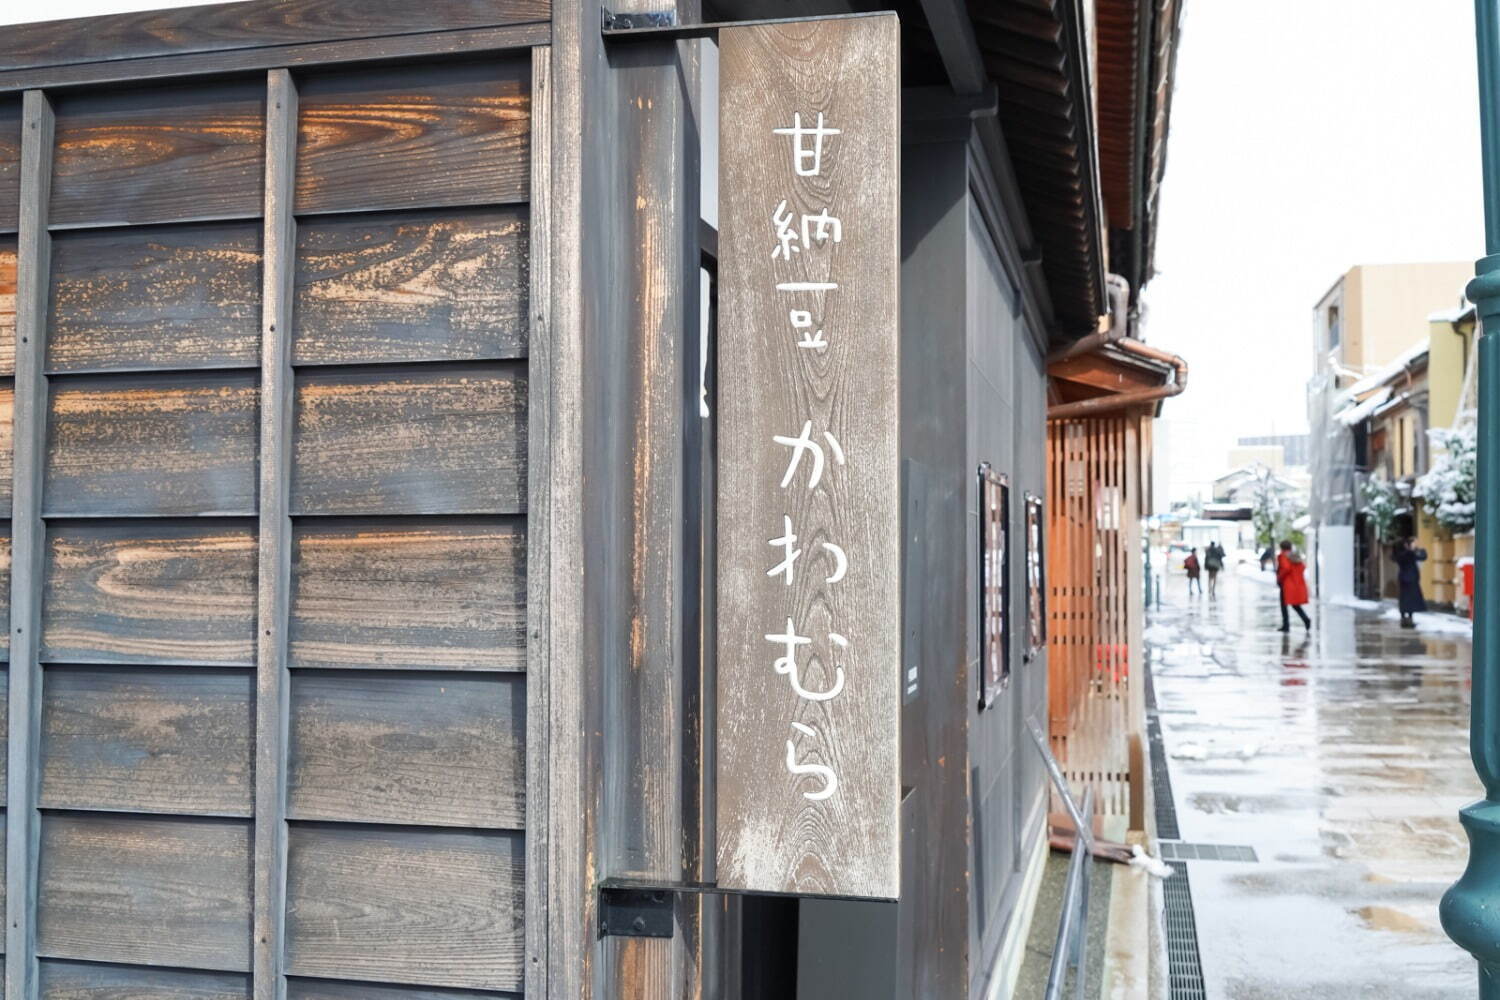 甘納豆かわむら